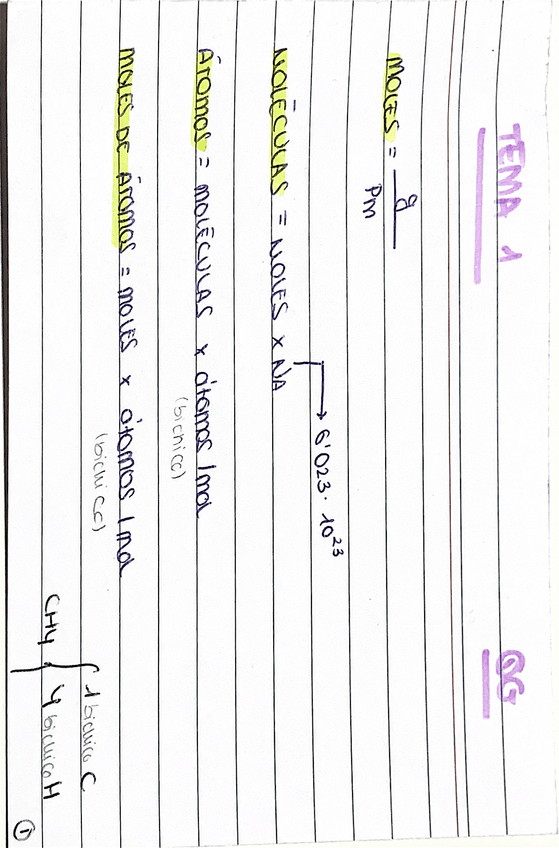 TEMA 1
QG
MOLES = g / Pm
MOLÉCULAS = MOLES x NA
→ 6'023 · 10²³
Átomos = MOLÉCULAS x átomos / mol
(bichico)
MOLES DE Átomos = MOLES x átomos / mol
(bichico)
CH4 { 1 bichico C
4 bichico H
1